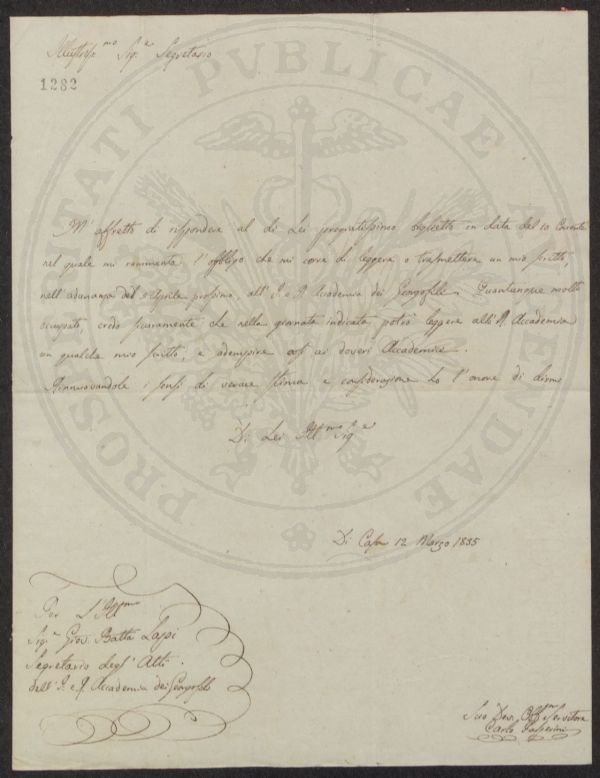 Illustriss.mo Sig.e Segretario
1282
PROSPERITATI PUBLICAE AUGENDAE
M' affretto di rispondere al di Lei pregiatissimo biglietto in data del 10 Corrente
nel quale mi rammenta l'obbligo che mi corre di leggere o trasmettere un mio scritto,
nell'adunanza del 5 Aprile prossimo, all'I. e R. Accademia dei Georgofili. Quantunque molto
occupato, credo sicuramente che nella giornata indicata potrò leggere all'R. Accademia
un qualche mio scritto, e adempire così ai doveri Accademici.
Rinnuovandole i sensi di verace stima e considerazione ho l'onore di dirmi
Di Lei Ill.mo Sig.e
Di Casa 12 Marzo 1835
Per L'Ill.mo
Sig.e Giov. Batta Lapi
Segretario degl' Atti
dell' I. e R. Accademia dei Georgofili
Suo Dev. Obb.mo Servitore
Carlo Passerini